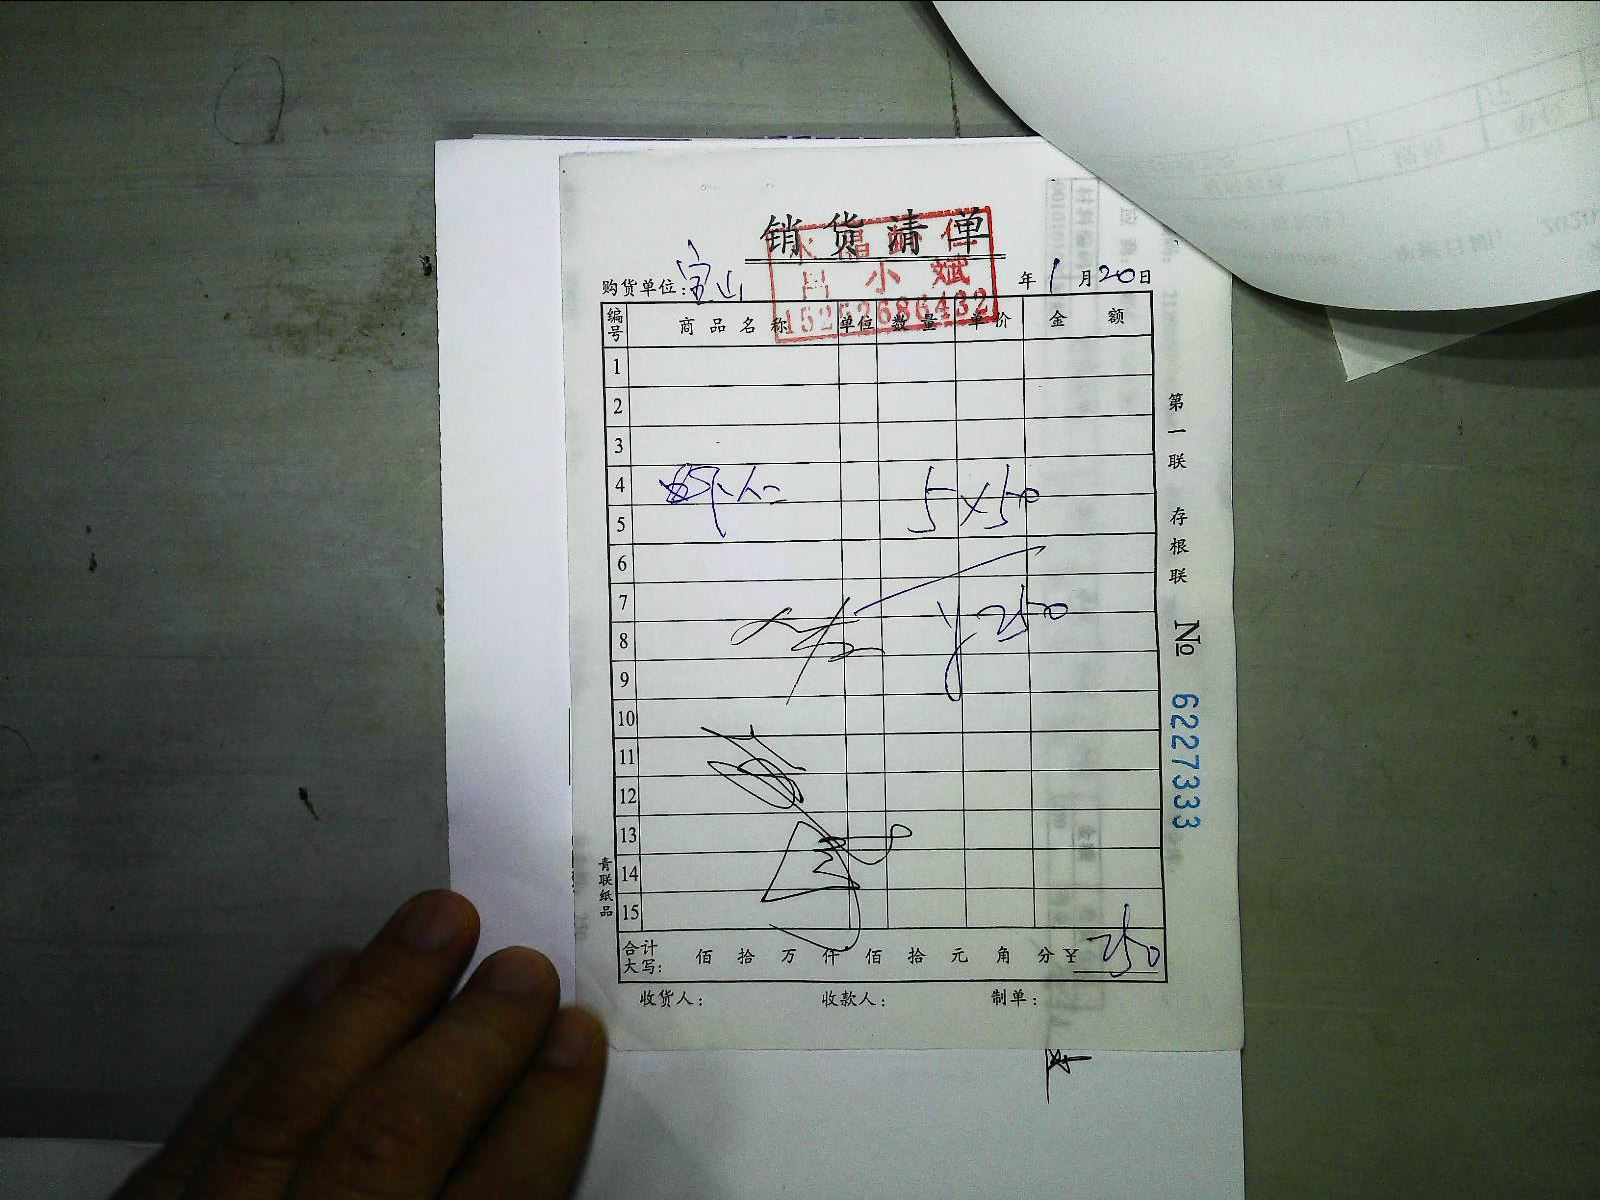 销货清单
小斌
15252686432
购货单位:宝山 年1月20日
编号 商品名称 单位 数量 单价 金额
1
2
3
4
5×50
5
6
7
¥250
8
9
10
11
12
13
14
15
合计大写: 佰拾万仟佰拾元角分¥250
收货人: 收款人: 制单:
第一联 存根联
№ 6227333
青联纸品